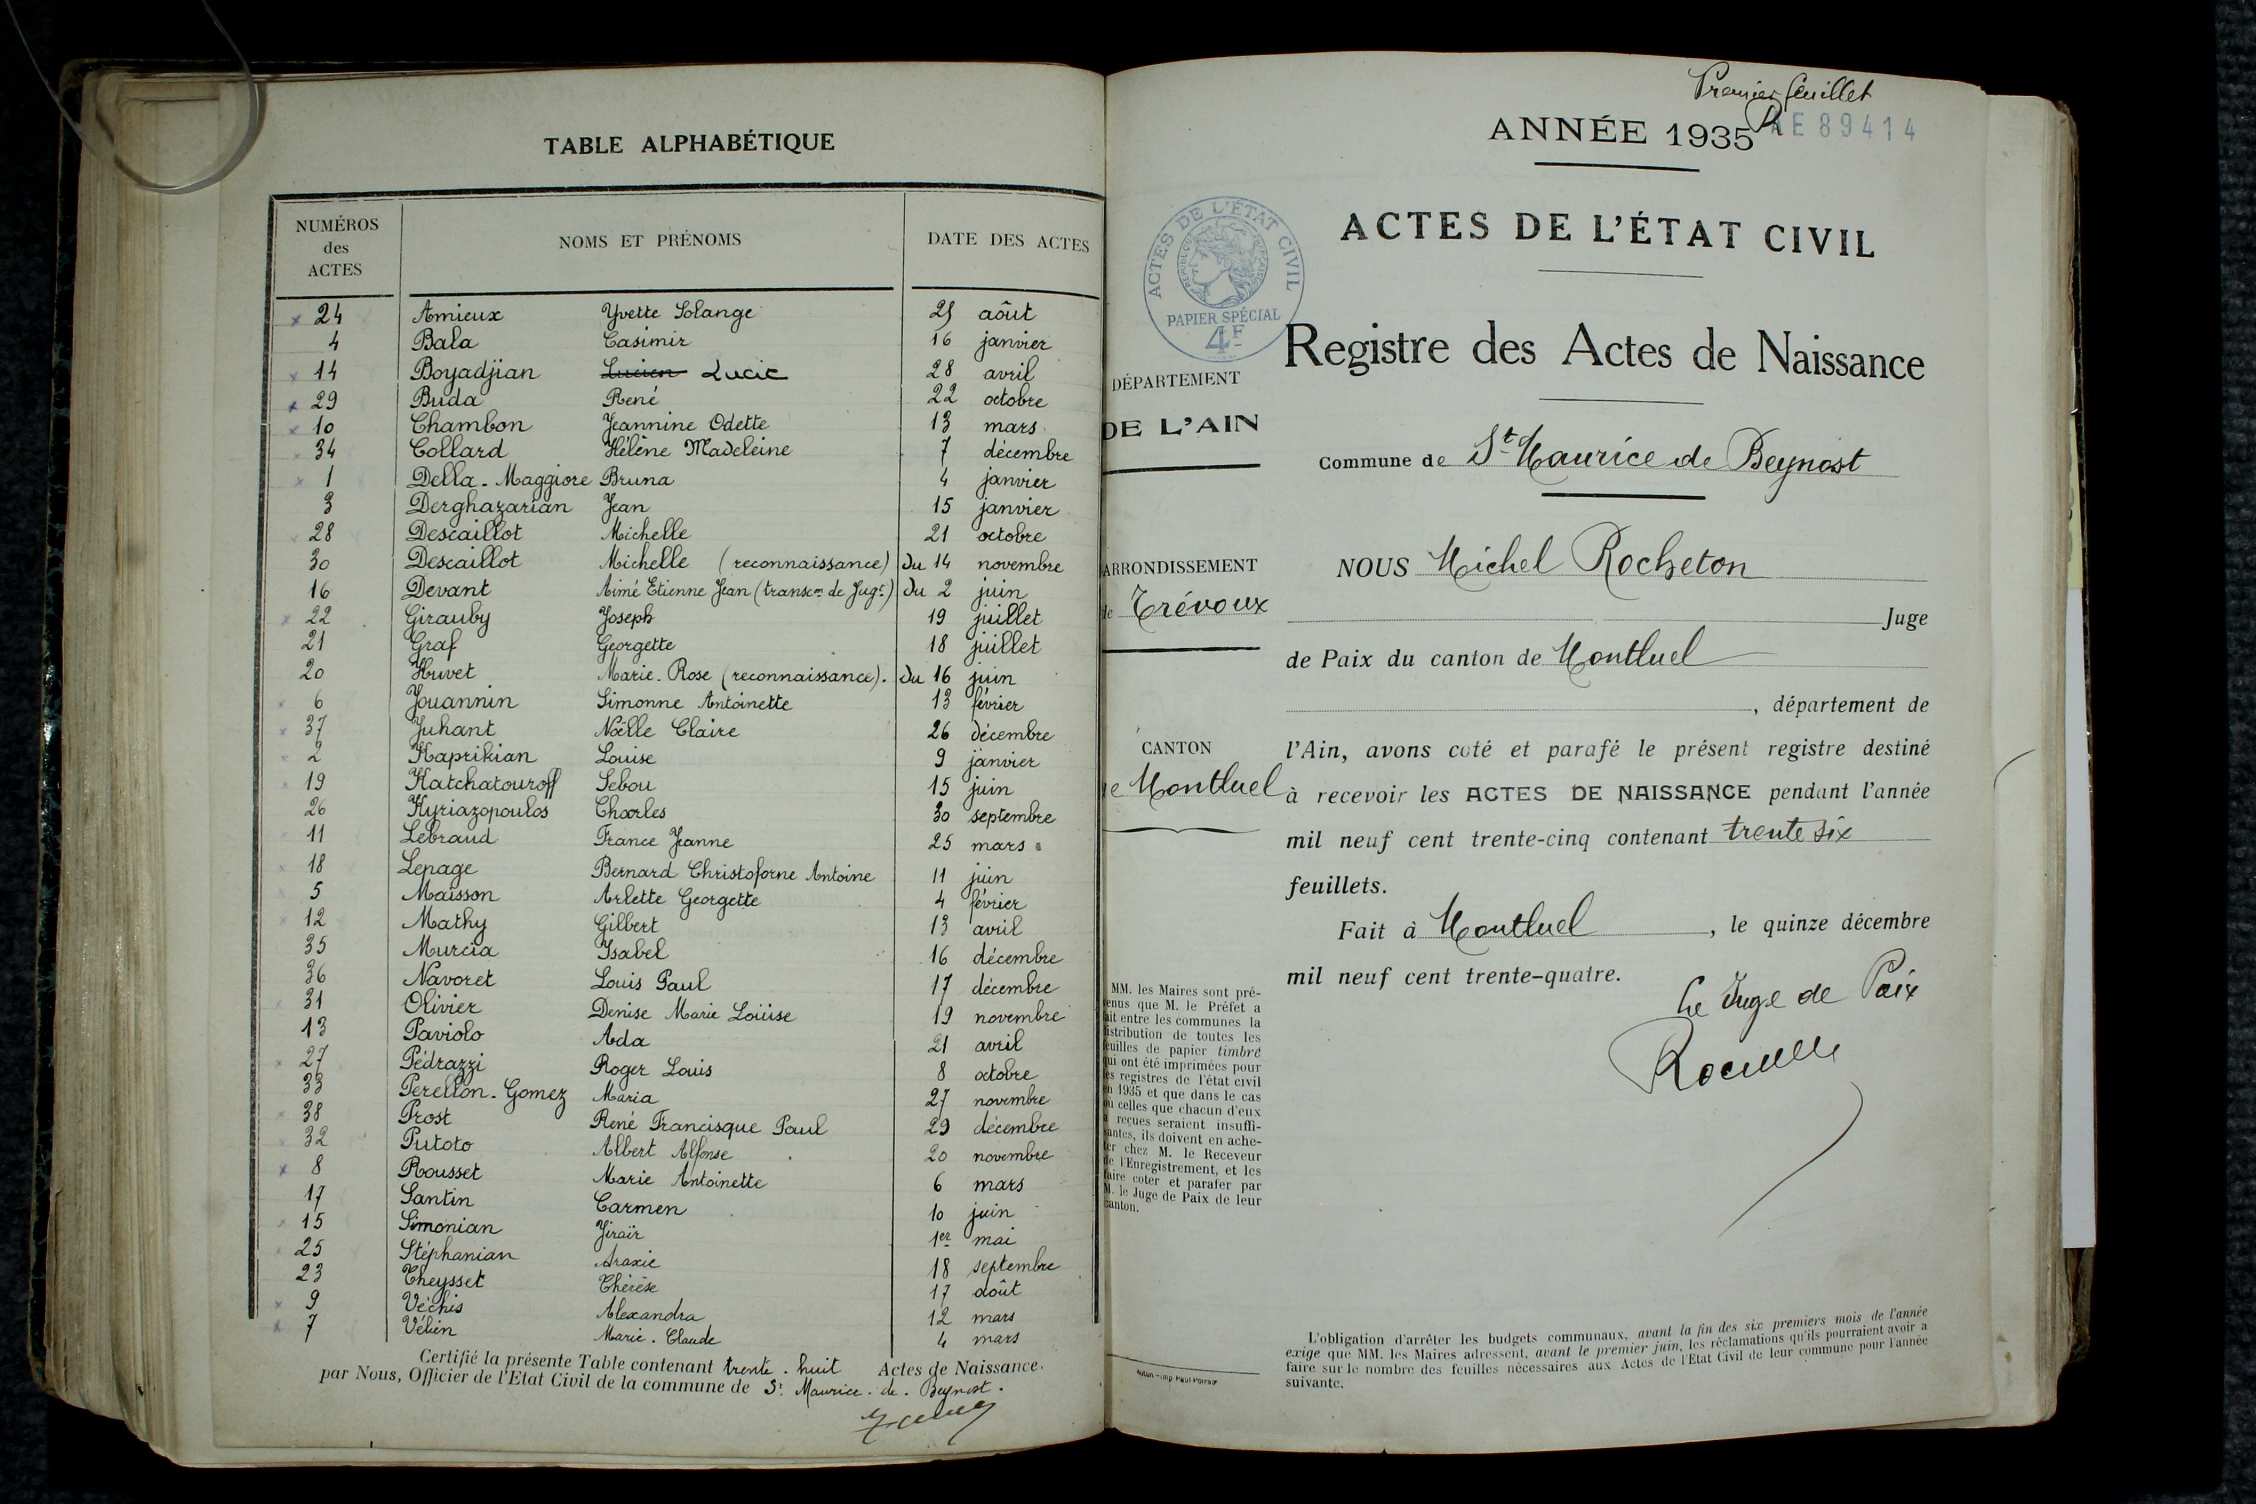 TABLE ALPHABÉTIQUE
NUMÉROS des ACTES NOMS ET PRÉNOMS DATE DES ACTES
24 Amieux Yvette Solange 25 aôut
4 Bala Casimir 16 janvier
14 Boyadjian Lucien Lucie 28 avril
29 Buda René 22 octobre
10 Chambon Jeannine Odette 13 mars
34 Collard Hélène Madeleine 7 décembre
1 Della-Maggiore Bruna 4 janvier
3 Derghazarian Jean 15 janvier
28 Descaillot Michelle 21 octobre
30 Descaillot Michelle (reconnaissance) du 14 novembre
16 Devant Aimé Etienne Jean (transcon de Jugt) du 2 juin
22 Girauby Joseph 19 juillet
21 Graf Georgette 18 juillet
20 Huvet Marie-Rose (reconnaissance). du 16 juin
6 Jouannin Simonne Antoinette 13 février
37 Juhant Noëlle Claire 26 décembre
2 Kaprikian Louise 9 janvier
19 Katchatouroff Sebou 15 juin
26 Kyriazopoulos Charles 30 septembre
11 Lebraud France Jeanne 25 mars
18 Lepage Bernard Christoforne Antoine 11 juin
5 Maisson Arlette Georgette 4 février
12 Mathy Gilbert 13 avril
35 Murcia Isabel 16 décembre
36 Navoret Louis Paul 17 décembre
31 Olivier Denise Marie Loüise 19 novembre
13 Paviolo Ada 21 avril
27 Pédrazzi Roger Louis 8 octobre
33 Perellon-Gomez Maria 27 novembre
38 Prost René Francisque Paul 29 décembre
32 Putoto Albert Alfonse 20 novembre
8 Rousset Marie Antoinette 6 mars
17 Santin Carmen 10 juin
15 Simonian Jiraïr 1er mai
25 Stéphanian Araxie 18 septembre
23 Theysset Thérèse 17 août
9 Véchis Alexandra 12 mars
7 Vélien Marie-Claude 4 mars
Certifié la présente Table contenant trente-huit Actes de Naissance.
par Nous, Officier de l'Etat Civil de la commune de St Maurice-de-Beynost.
Premier feuillet
ANNÉE 1935
AE 89414
ACTES DE L'ÉTAT CIVIL
RÉPUBLIQUE FRANÇAISE
PAPIER SPÉCIAL
4F
ACTES DE L'ÉTAT CIVIL
Registre des Actes de Naissance
DÉPARTEMENT
DE L'AIN
ARRONDISSEMENT
de Trévoux
CANTON
de Montluel
Commune de St Maurice de Beynost
NOUS Michel Rocheton
Juge
de Paix du canton de Montluel
, département de
l'Ain, avons coté et parafé le présent registre destiné
à recevoir les ACTES DE NAISSANCE pendant l'année
mil neuf cent trente-cinq contenant trente six
feuillets.
Fait à Montluel, le quinze décembre
mil neuf cent trente-quatre.
Le Juge de Paix
MM. les Maires sont pré-
venus que M. le Préfet a
fait entre les communes la
distribution de toutes les
feuilles de papier timbré
qui ont été imprimées pour
les registres de l'état civil
en 1935 et que dans le cas
où celles que chacun d'eux
a reçues seraient insuffi-
santes, ils doivent en ache-
ter chez M. le Receveur
de l'Enregistrement, et les
faire coter et parafer par
M. le Juge de Paix de leur
canton.
L'obligation d'arrêter les budgets communaux, avant la fin des six premiers mois de l'année
exige que MM. les Maires adressent, avant le premier juin, les réclamations qu'ils pourraient avoir à
faire sur le nombre des feuilles nécessaires aux Actes de l'Etat Civil de leur commune pour l'année
suivante.